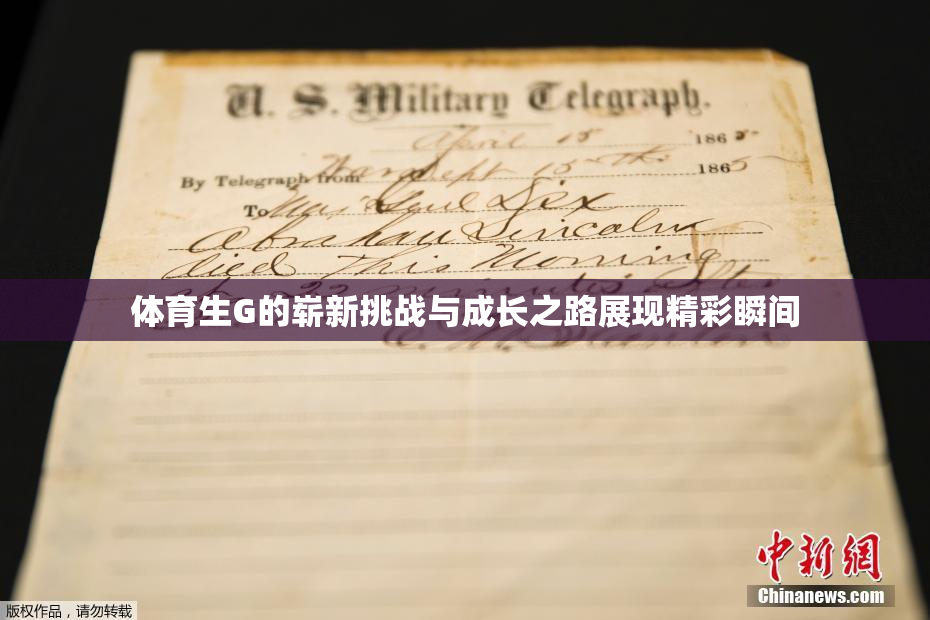 U. S. Military Telegraph.
April 15 1865
By Telegraph from War Dept 15th 1865
To Maj Genl Dix
Abraham Lincoln
died This Morning
at 22 minutes after
体育生G的崭新挑战与成长之路展现精彩瞬间
E. M. Stanton
中新网
Chinanews.com
版权作品，请勿转载